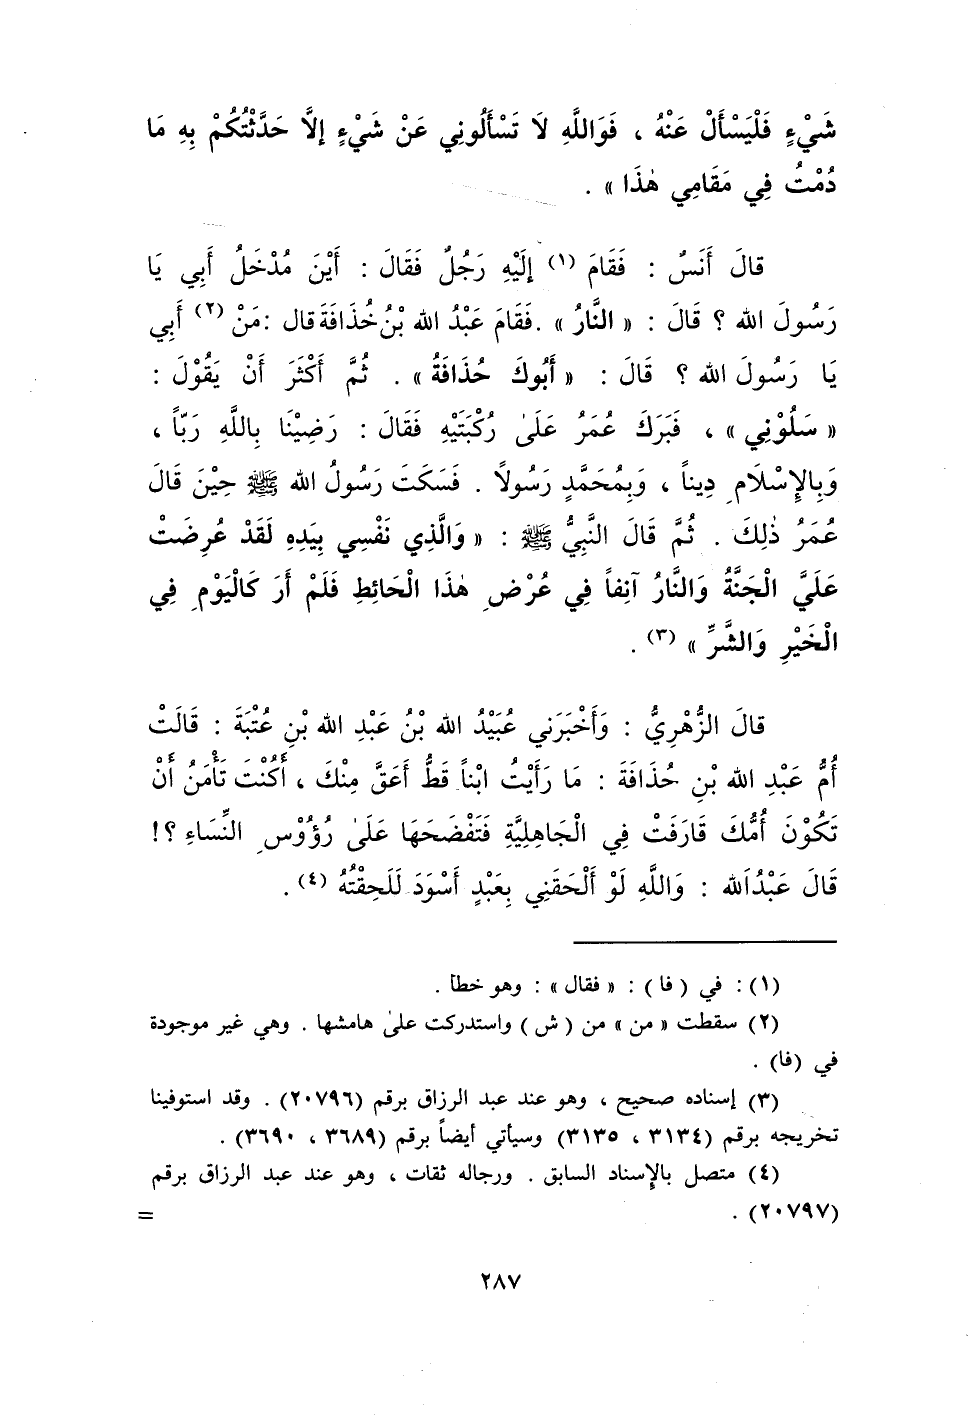 شَيْءٍ فَلْيَسْأَلْ عَنْهُ ، فَوَاللَّهِ لَا تَسْأَلُونِي عَنْ شَيْءٍ إلَّا حَدَّثْتُكُمْ بِهِ مَا
دُمْتُ فِي مَقَامِي هٰذَا » .
قالَ أَنَسٌ : فَقَامَ (١) إلَيْهِ رَجُلٌ فَقَالَ : أَيْنَ مُدْخَلُ أَبِي يَا
رَسُولَ الله ؟ قَالَ : « النَّارُ » .فَقَامَ عَبْدُ الله بْنُ حُذَافَةَ قال :مَنْ (٢) أَبِي
يَا رَسُولَ الله ؟ قَالَ : « أَبُوكَ حُذَافَةُ » . ثُمَّ أَكْثَرَ أَنْ يَقُوْلَ :
« سَلُوْنِي » ، فَبَرَكَ عُمَرُ عَلَىٰ رُكْبَتَيْهِ فَقَالَ : رَضِيْنَا بِاللَّهِ رَبّاً ،
وَبِالإِسْلَامِ دِيناً ، وَبِمُحَمَّدٍ رَسُولاً . فَسَكَتَ رَسُولُ الله ﷺ حِيْنَ قَالَ
عُمَرُ ذٰلِكَ . ثُمَّ قَالَ النَّبِيُّ ﷺ : « وَالَّذِي نَفْسِي بِيَدِهِ لَقَدْ عُرِضَتْ
عَلَيَّ الْجَنَّةُ وَالنَّارُ آنِفاً فِي عُرْضِ هٰذَا الْحَائِطِ فَلَمْ أَرَ كَالْيَوْمِ فِي
الْخَيْرِ وَالشَّرِّ » (٣) .
قالَ الزُّهْرِيُّ : وَأَخْبَرَنِي عُبَيْدُ الله بْنُ عَبْدِ الله بْنِ عُتْبَةَ : قَالَتْ
أُمُّ عَبْدِ الله بْنِ حُذَافَةَ : مَا رَأَيْتُ ابْناً قَطُّ أَعَقَّ مِنْكَ ، أَكُنْتَ تَأْمَنُ أَنْ
تَكُوْنَ أُمُّكَ قَارَفَتْ فِي الْجَاهِلِيَّةِ فَتَفْضَحَهَا عَلَىٰ رُؤُوْسِ النِّسَاءِ ؟!
قَالَ عَبْدُالله : وَاللَّهِ لَوْ أَلْحَقَنِي بِعَبْدٍ أَسْوَدَ لَلَحِقْتُهُ (٤) .
(١) : في ( فا ) : « فقال » : وهو خطأ .
(٢) سقطت « من » من ( ش ) واستدركت علىٰ هامشها . وهي غير موجودة
في (فا) .
(٣) إسناده صحيح ، وهو عند عبد الرزاق برقم (٢٠٧٩٦) . وقد استوفينا
تخريجه برقم (٣١٣٤ ، ٣١٣٥) وسيأتي أيضاً برقم (٣٦٨٩ ، ٣٦٩٠) .
(٤) متصل بالإسناد السابق . ورجاله ثقات ، وهو عند عبد الرزاق برقم
(٢٠٧٩٧) . =
٢٨٧